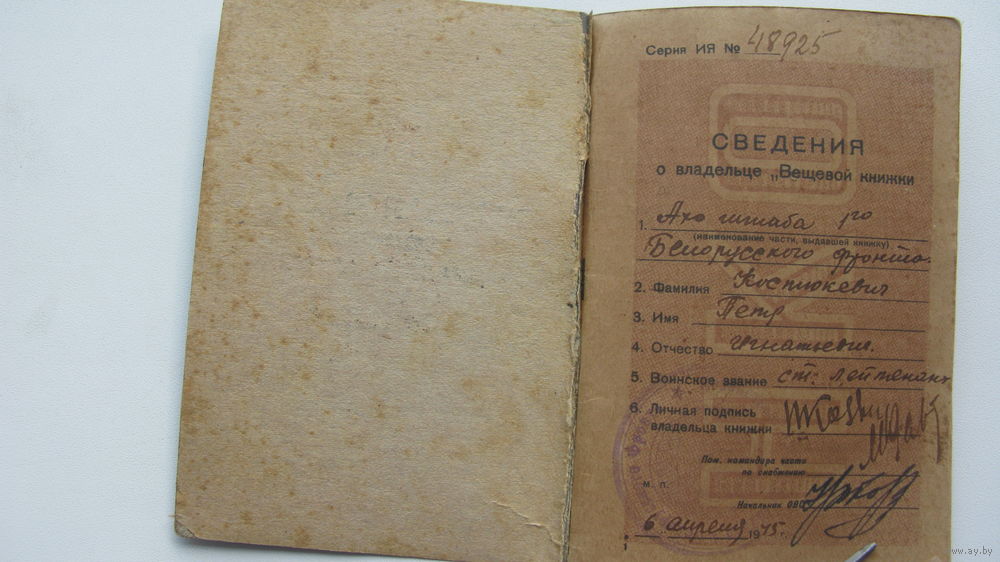 Серия ИЯ № 48925
СВЕДЕНИЯ
о владельце „Вещевой книжки
1. Ахо штаба 1го
(наименование части, выдавшей книжку)
Белорусского фронта
2. Фамилия Костюкевич
3. Имя Петр
4. Отчество Игнатьевич
5. Воинское звание ст. лейтенант
6. Личная подпись
владельца книжки
Пом. командира части
по снабжению
м. п.
Начальник ОВС
6 апреля 1945г.
1
www.ay.by